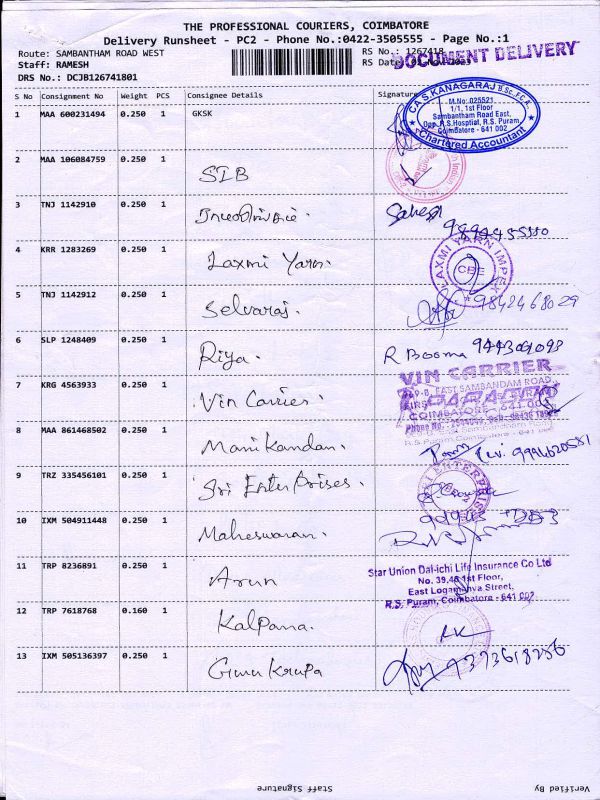 THE PROFESSIONAL COURIERS, COIMBATORE
Delivery Runsheet - PC2 - Phone No.:0422-3505555 - Page No.:1
Route: SAMBANTHAM ROAD WEST
RS No.: 1267418
DOCUMENT DELIVERY
Staff: RAMESH
RS Date
DRS No.: DCJB126741801
S No Consignment No Weight PCS Consignee Details Signature
CA S.KANAGARAJ B.Sc.,F.C.A.
M.No: 025521
1/1, 1st Floor
Sambantham Road East,
Opp. R.S.Hosptial, R.S. Puram,
Coimbatore - 641 002
Chartered Accountant
1 MAA 600231494 0.250 1 GKSK
2 MAA 106084759 0.250 1 SIB
3 TNJ 1142910 0.250 1
4 KRR 1283269 0.250 1 Laxmi Yarn.
LAXMI YARN IMPEX
CBE
5 TNJ 1142912 0.250 1 Selvaraj. 9842468029
6 SLP 1248409 0.250 1 Riya. R Booma
7 KRG 4563933 0.250 1 Vin Carrier.
VIN CARRIER
EAST SAMBANDAM ROAD,
COIMBATORE - 641 002
R.S.Puram, Coimbatore - 641
8 MAA 861468502 0.250 1 Manikandan. 9994620581
9 TRZ 335456101 0.250 1 Sri Enterprises.
ENTERPRISES
10 IXM 504911448 0.250 1 Maheswaran.
11 TRP 8236891 0.250 1 Arun
Star Union Dai-ichi Life Insurance Co Ltd
No. 39,46 1st Floor,
East Logamanya Street,
R.S. Puram, Coimbatore - 641 002
12 TRP 7618768 0.160 1 Kalpana. RK
13 IXM 505136397 0.250 1 Guru Krupa 9373618256
Staff Signature
Verified By